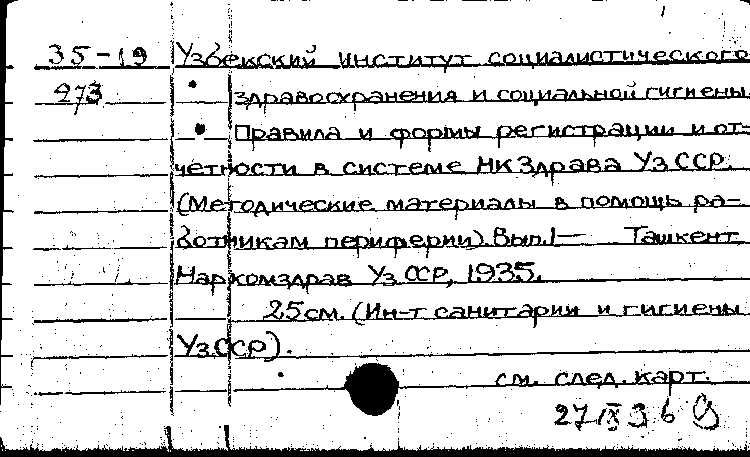 35-19 Узбекский институт социалистического
273 здравоохранения и социальной гигиены.
Правила и формы регистрации и от-
четности в системе НКЗдрава УзССР.
(Методические материалы в помощь ра-
ботникам периферии). Вып.1— Ташкент
Наркомздрав УзССР, 1935.
25см. (Ин-т санитарии и гигиены
УзССР).
см. след. карт.
27 IX 36